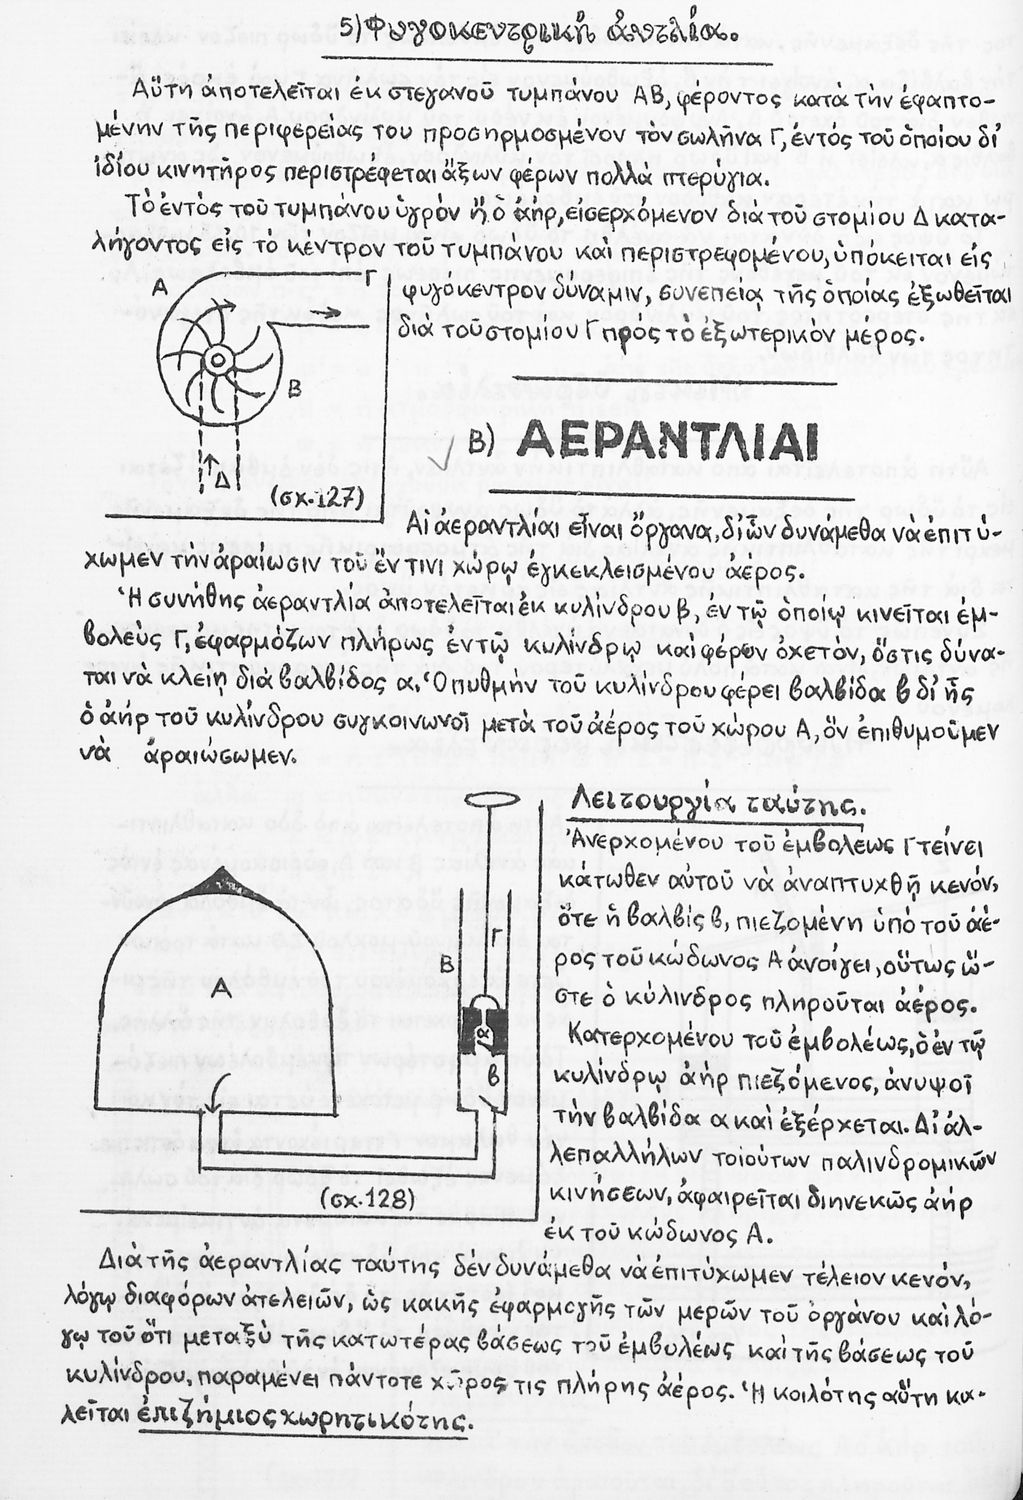 5) Φυγοκεντρικὴ ἀντλία.
Αὕτη ἀποτελεῖται ἐκ στεγανοῦ τυμπάνου ΑΒ, φέροντος κατὰ τὴν ἐφαπτο-
μένην τῆς περιφερείας του προσηρμοσμένον τὸν σωλῆνα Γ, ἐντός τοῦ ὁποίου δι'
ἰδίου κινητῆρος περιστρέφεται ἄξων φέρων πολλὰ πτερύγια.
Τὸ ἐντὸς τοῦ τυμπάνου ὑγρόν ἢ ὁ ἀήρ, εἰσερχόμενον διὰ τοῦ στομίου Δ κατα-
λήγοντος εἰς τὸ κέντρον τοῦ τυμπάνου καὶ περιστρεφομένου, ὑπόκειται εἰς
φυγόκεντρον δύναμιν, συνεπείᾳ τῆς ὁποίας ἐξωθεῖται
διὰ τοῦ στομίου Γ πρὸς τὸ ἐξωτερικὸν μέρος.
Α
Γ
Β
Δ
(σχ. 127)
Β) ΑΕΡΑΝΤΛΙΑΙ
Αἱ ἀεραντλίαι εἶναι ὄργανα, δι' ὧν δυνάμεθα νὰ ἐπιτύ-
χωμεν τὴν ἀραίωσιν τοῦ ἔν τινι χώρῳ ἐγκεκλεισμένου ἀέρος.
Ἡ συνήθης ἀεραντλία ἀποτελεῖται ἐκ κυλίνδρου β, ἐν τῷ ὁποίῳ κινεῖται ἐμ-
βολεὺς Γ, ἐφαρμόζων πλήρως ἐν τῷ κυλίνδρῳ καὶ φέρων ὀχετόν, ὅστις δύνα-
ται νὰ κλείῃ διὰ βαλβίδος α. Ὁ πυθμὴν τοῦ κυλίνδρου φέρει βαλβίδα β δι' ἧς
ὁ ἀὴρ τοῦ κυλίνδρου συγκοινωνεῖ μετὰ τοῦ ἀέρος τοῦ χώρου Α, ὅν ἐπιθυμοῦμεν
νὰ ἀραιώσωμεν.
Λειτουργία ταύτης.
Ἀνερχομένου τοῦ ἐμβολέως Γ τείνει
κάτωθεν αὐτοῦ νὰ ἀναπτυχθῇ κενόν,
ὅτε ἡ βαλβὶς β, πιεζομένη ὑπὸ τοῦ ἀέ-
ρος τοῦ κώδωνος Α ἀνοίγει, οὕτως ὥ-
στε ὁ κύλινδρος πληροῦται ἀέρος.
Κατερχομένου τοῦ ἐμβολέως, ὁ ἐν τῷ
κυλίνδρῳ ἀὴρ πιεζόμενος, ἀνυψοῖ
τὴν βαλβίδα α καὶ ἐξέρχεται. Δι' ἀλ-
λεπαλλήλων τοιούτων παλινδρομικῶν
κινήσεων, ἀφαιρεῖται διηνεκῶς ἀὴρ
ἐκ τοῦ κώδωνος Α.
Α
Β
Γ
α
β
(σχ. 128)
Διὰ τῆς ἀεραντλίας ταύτης δὲν δυνάμεθα νὰ ἐπιτύχωμεν τέλειον κενόν,
λόγῳ διαφόρων ἀτελειῶν, ὡς κακῆς ἐφαρμογῆς τῶν μερῶν τοῦ ὀργάνου καὶ λό-
γῳ τοῦ ὅτι μεταξὺ τῆς κατωτέρας βάσεως τοῦ ἐμβολέως καὶ τῆς βάσεως τοῦ
κυλίνδρου, παραμένει πάντοτε χῶρος τις πλήρης ἀέρος. Ἡ κοιλότης αὕτη κα-
λεῖται ἐπιζήμιος χωρητικότης.